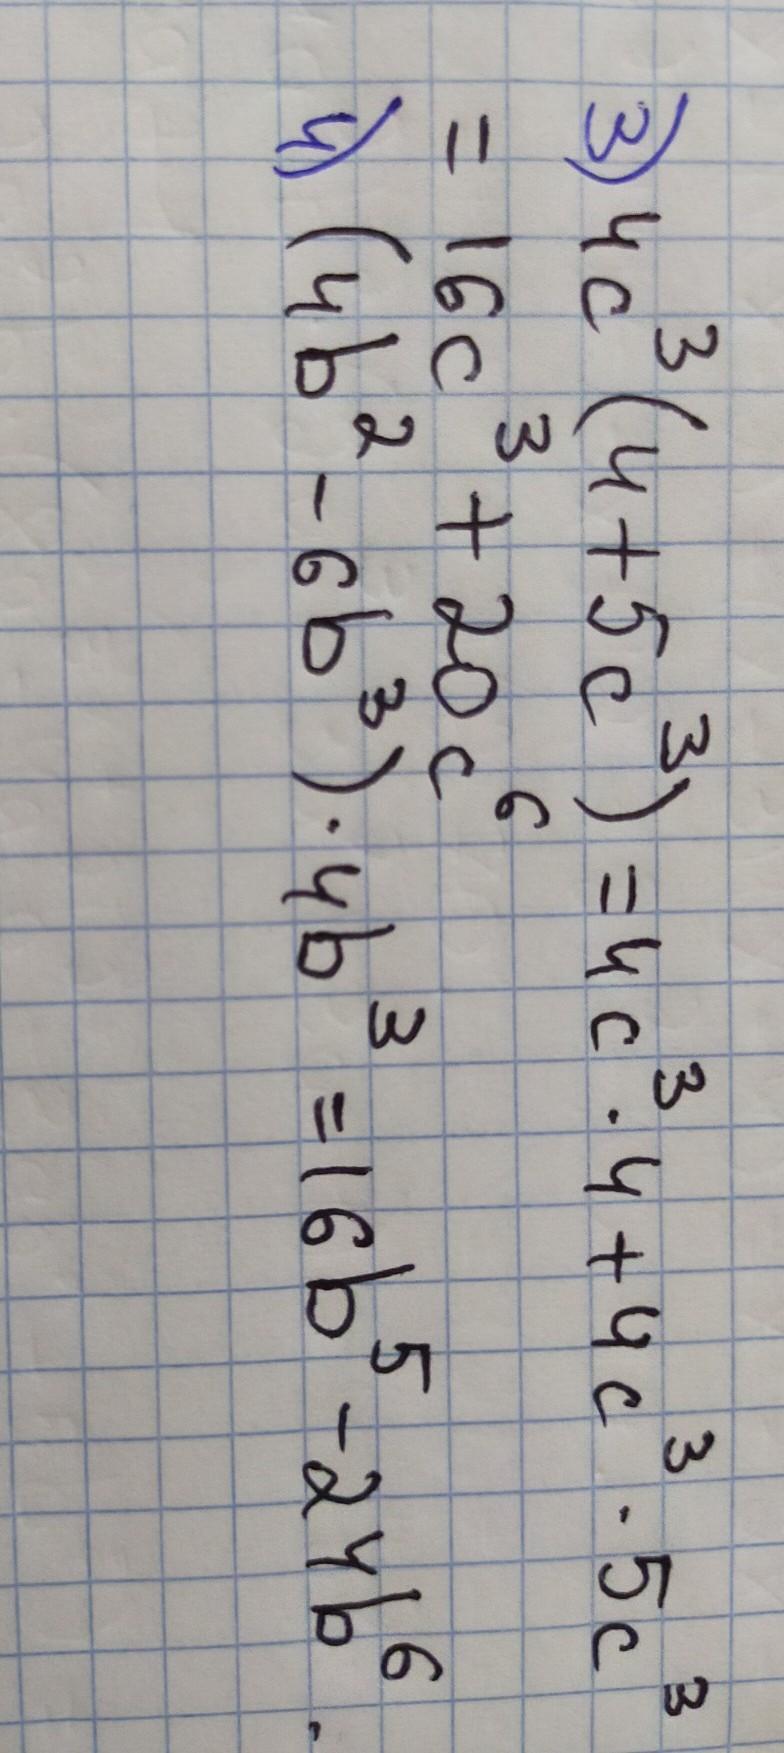 3) 4c³(4+5c³)=4c³·4+4c³·5c³
= 16c³+20c⁶
4) (4b²-6b³)·4b³=16b⁵-24b⁶.